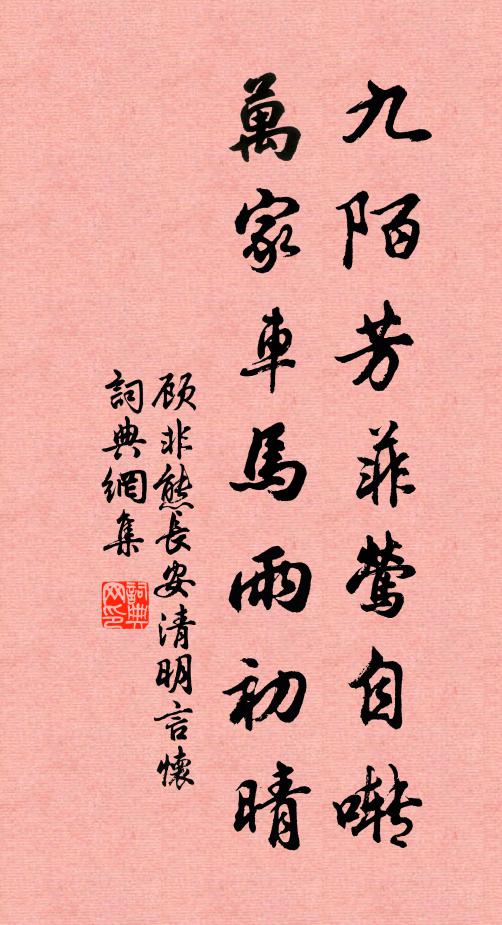 九陌芳菲莺自囀
萬家車馬雨初晴
顾非熊長安清明言懷
詞典網集
詞典網印